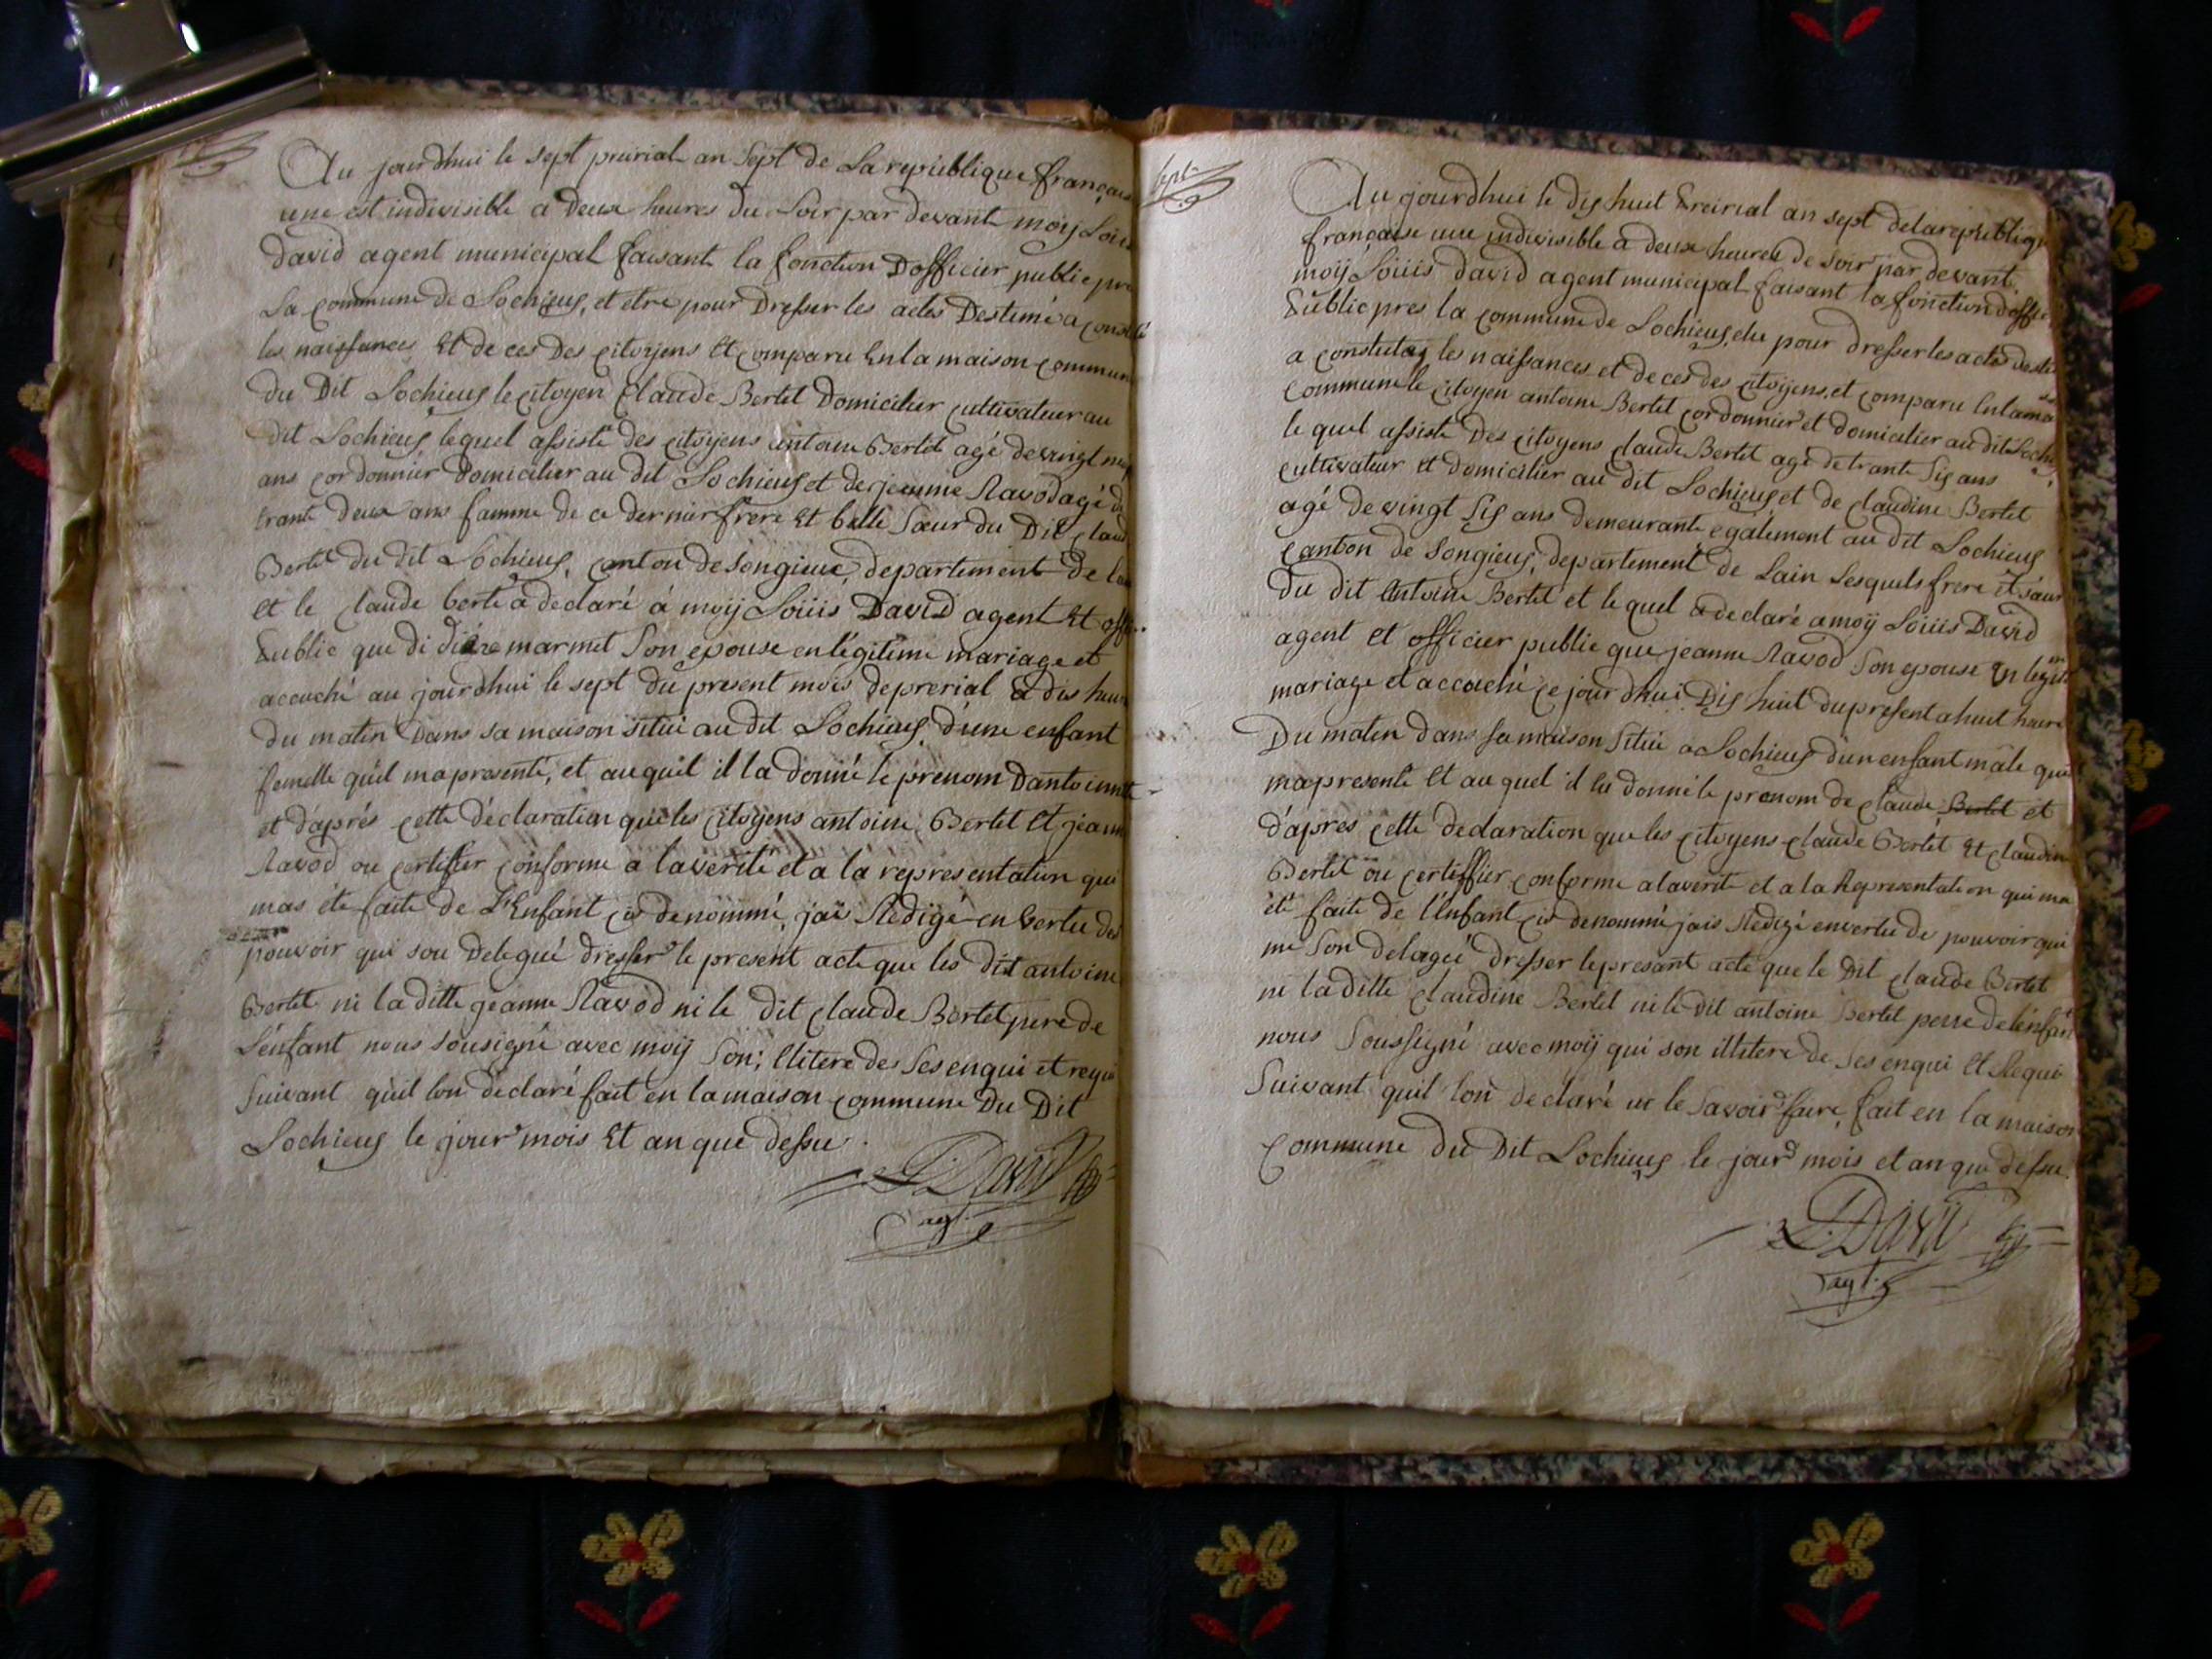 Au jourdhui le sept preirial an sept de La republique francaise
une est indivisible a deux heures du soir par devant moÿ Loiiis
david agent municipal faisant la fonction Dofficier public pre
La commune de Lochieus, et etre pour Dresser les actes Destiné a
les naissances Et de ces Des citoyens Et comparu En la maison commun
du Dit Lochieus le citoyen Claude Bertet Domicilier cultivateur au
dit Lochieus lequel assisté des citoyens antoine Bertet agé de vingt
ans cordonnier Domicilier au dit Lochieus et de jeanne Ravod agé de
trante deux ans famme de ce dernier frere Et belle Sœur du Dit Claud
Bertet du dit Lochieus, canton de songieue, departement De
et le Claude berte a declaré á moÿ Loiiis David agent Et
Public que di marmet Son epouse en légitime mariage et
accouché au jourdhui le sept du present mois de prerial a dis heur
du matin Dans sa maison situé au dit Lochieus d'une enfant
femelle quil ma presenté, et auquil il la donné le prenom Dantoinette
et d'aprés cette déclaration que les citoyens antoine Bertet Et jeanne
Ravod ou certifier conforme a la verité et a la representation qui
mas été faite de L'Enfant cis denommé, jais Redigé en vertu des
pouvoir qui sou Delegué dresser le present acte que les dit antoine
Bertet ni la ditte jeanne Ravod ni le dit Claude Bertet pere de
L'enfant nous sousigné avec moÿ Son; lliteré des Ses enqui et requi
Suivant quil lon declaré fait en la maison commune Du Dit
Lochieus le jour mois Et an que dessu.
L. David
agt.
Sept
Au jourdhui le dis huit Preirial an sept de la republique
francaise une indivisible a deux heures de soir par devant
moÿ Loiiis david agent municipal faisant la fonction d'offi
Public pres la commune de Lochieus, elu pour dresser les acte desti
a constutas les naissances et de ces des citoÿens, et comparu En la ma
commune le citoyen antoine Bertet cordonnier et domicilier au dit Lochi
le quel assisté Des citoyens claude Bertet agé de trante Sis ans
cultivateur et domicilier au dit Lochieus et de claudine Bertet
agé de vingt Sis ans demeurante egalement au dit Lochieus
canton de songieus, departement de Lain Lesquels frere et sœur
du dit Antoine Bertet et le quel a declaré a moÿ Loiiis David
agent et officier public que jeanne Ravod Son epouse En legit
mariage et accouché ce jour dhui Dis huit du present a huit heure
Du maten dans sa maison Situé a Lochieus d'un enfant mâle que
ma presenté Et au quel il lu donné le prenom de Claude Bertet et
d'après cette declaration que les citoyens claude Bertet Et claudine
Bertet ou certiffier conforme a la verité et a la Representation qui ma
été faite de l'Enfant cis denommé jais Redigé en vertu de pouvoir qui
me Son delagéé dresser le presant acte que le Dit claude Bertet
ni la ditte claudine Bertet ni le dit antoine Bertet perre de lénfant
nous Soussigné avec moÿ qui son illiteré de ses enqui Et Requi
Suivant quil lon declaré ne le Savoir faire, fait en la maison
commune du Dit Lochieus le jour mois et an que dessu.
L. David
agt.